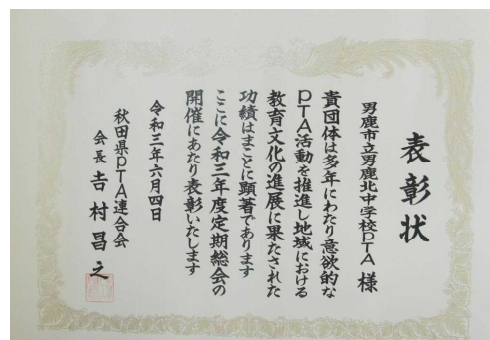 表彰状
男鹿市立男鹿北中学校PTA 様
貴団体は多年にわたり意欲的な
PTA活動を推進し地域における
教育文化の進展に果たされた
功績はまことに顕著であります
ここに令和三年度定期総会の
開催にあたり表彰いたします
令和三年六月四日
秋田県PTA連合会
会長 吉村昌之